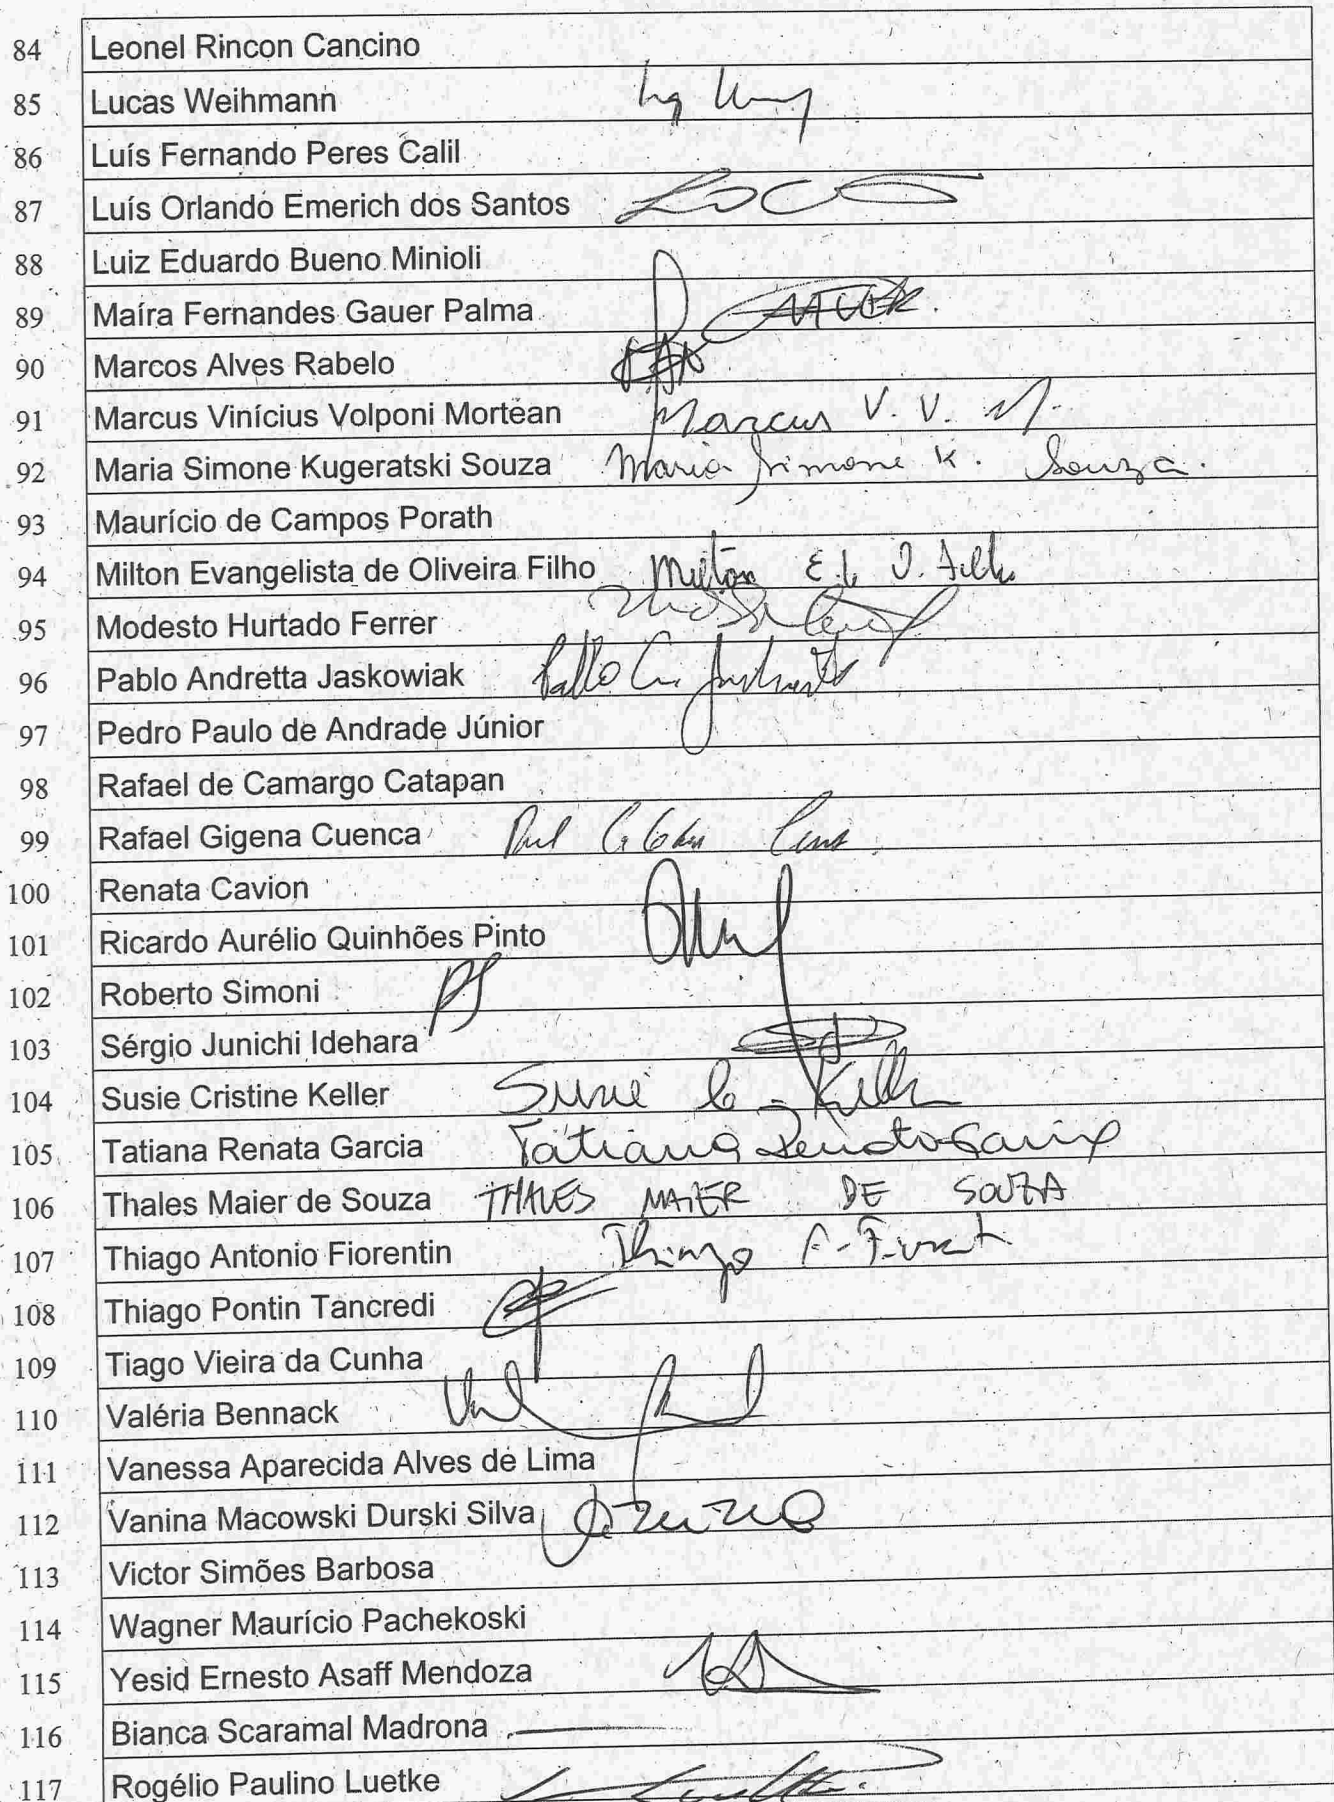 84 Leonel Rincon Cancino
85 Lucas Weihmann
86 Luís Fernando Peres Calil
87 Luís Orlando Emerich dos Santos
88 Luiz Eduardo Bueno Minioli
89 Maíra Fernandes Gauer Palma
90 Marcos Alves Rabelo
91 Marcus Vinícius Volponi Mortean Marcus V. V. M.
92 Maria Simone Kugeratski Souza Maria Simone K. Souza.
93 Maurício de Campos Porath
94 Milton Evangelista de Oliveira Filho Milton E. de O. Filho
95 Modesto Hurtado Ferrer
96 Pablo Andretta Jaskowiak
97 Pedro Paulo de Andrade Júnior
98 Rafael de Camargo Catapan
99 Rafael Gigena Cuenca
100 Renata Cavion
101 Ricardo Aurélio Quinhões Pinto
102 Roberto Simoni
103 Sérgio Junichi Idehara
104 Susie Cristine Keller Susie C. Keller
105 Tatiana Renata Garcia Tatiana Renata Garcia
106 Thales Maier de Souza THALES MAIER DE SOUZA
107 Thiago Antonio Fiorentin Thiago A. Fiorentin
108 Thiago Pontin Tancredi
109 Tiago Vieira da Cunha
110 Valéria Bennack
111 Vanessa Aparecida Alves de Lima
112 Vanina Macowski Durski Silva
113 Victor Simões Barbosa
114 Wagner Maurício Pachekoski
115 Yesid Ernesto Asaff Mendoza
116 Bianca Scaramal Madrona
117 Rogélio Paulino Luetke